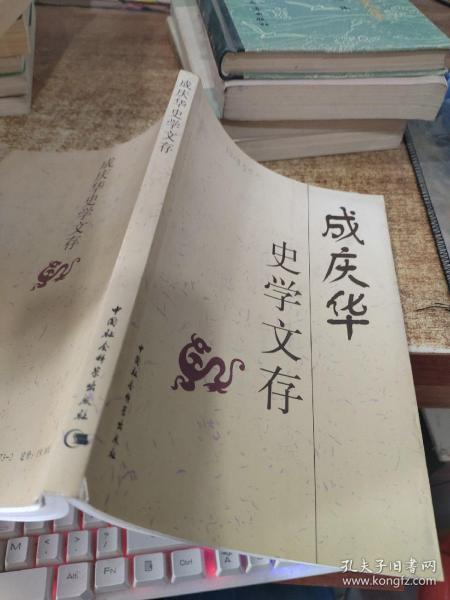 成庆华
史学文存
中国社会科学出版社
成庆华史学文存
中国社会科学出版社
成庆华史学文存
M
Alt
孔夫子旧书网
www.kongfz.com